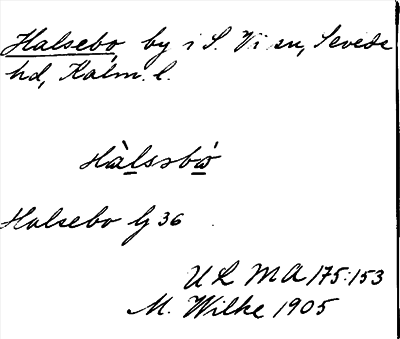 Halsebo, by i S. Vi sn, Sevede
hd, Kalm. l.
Hàlsəbω
Halsebo Lj 36
U L M A 175:153
M. Wilke 1905